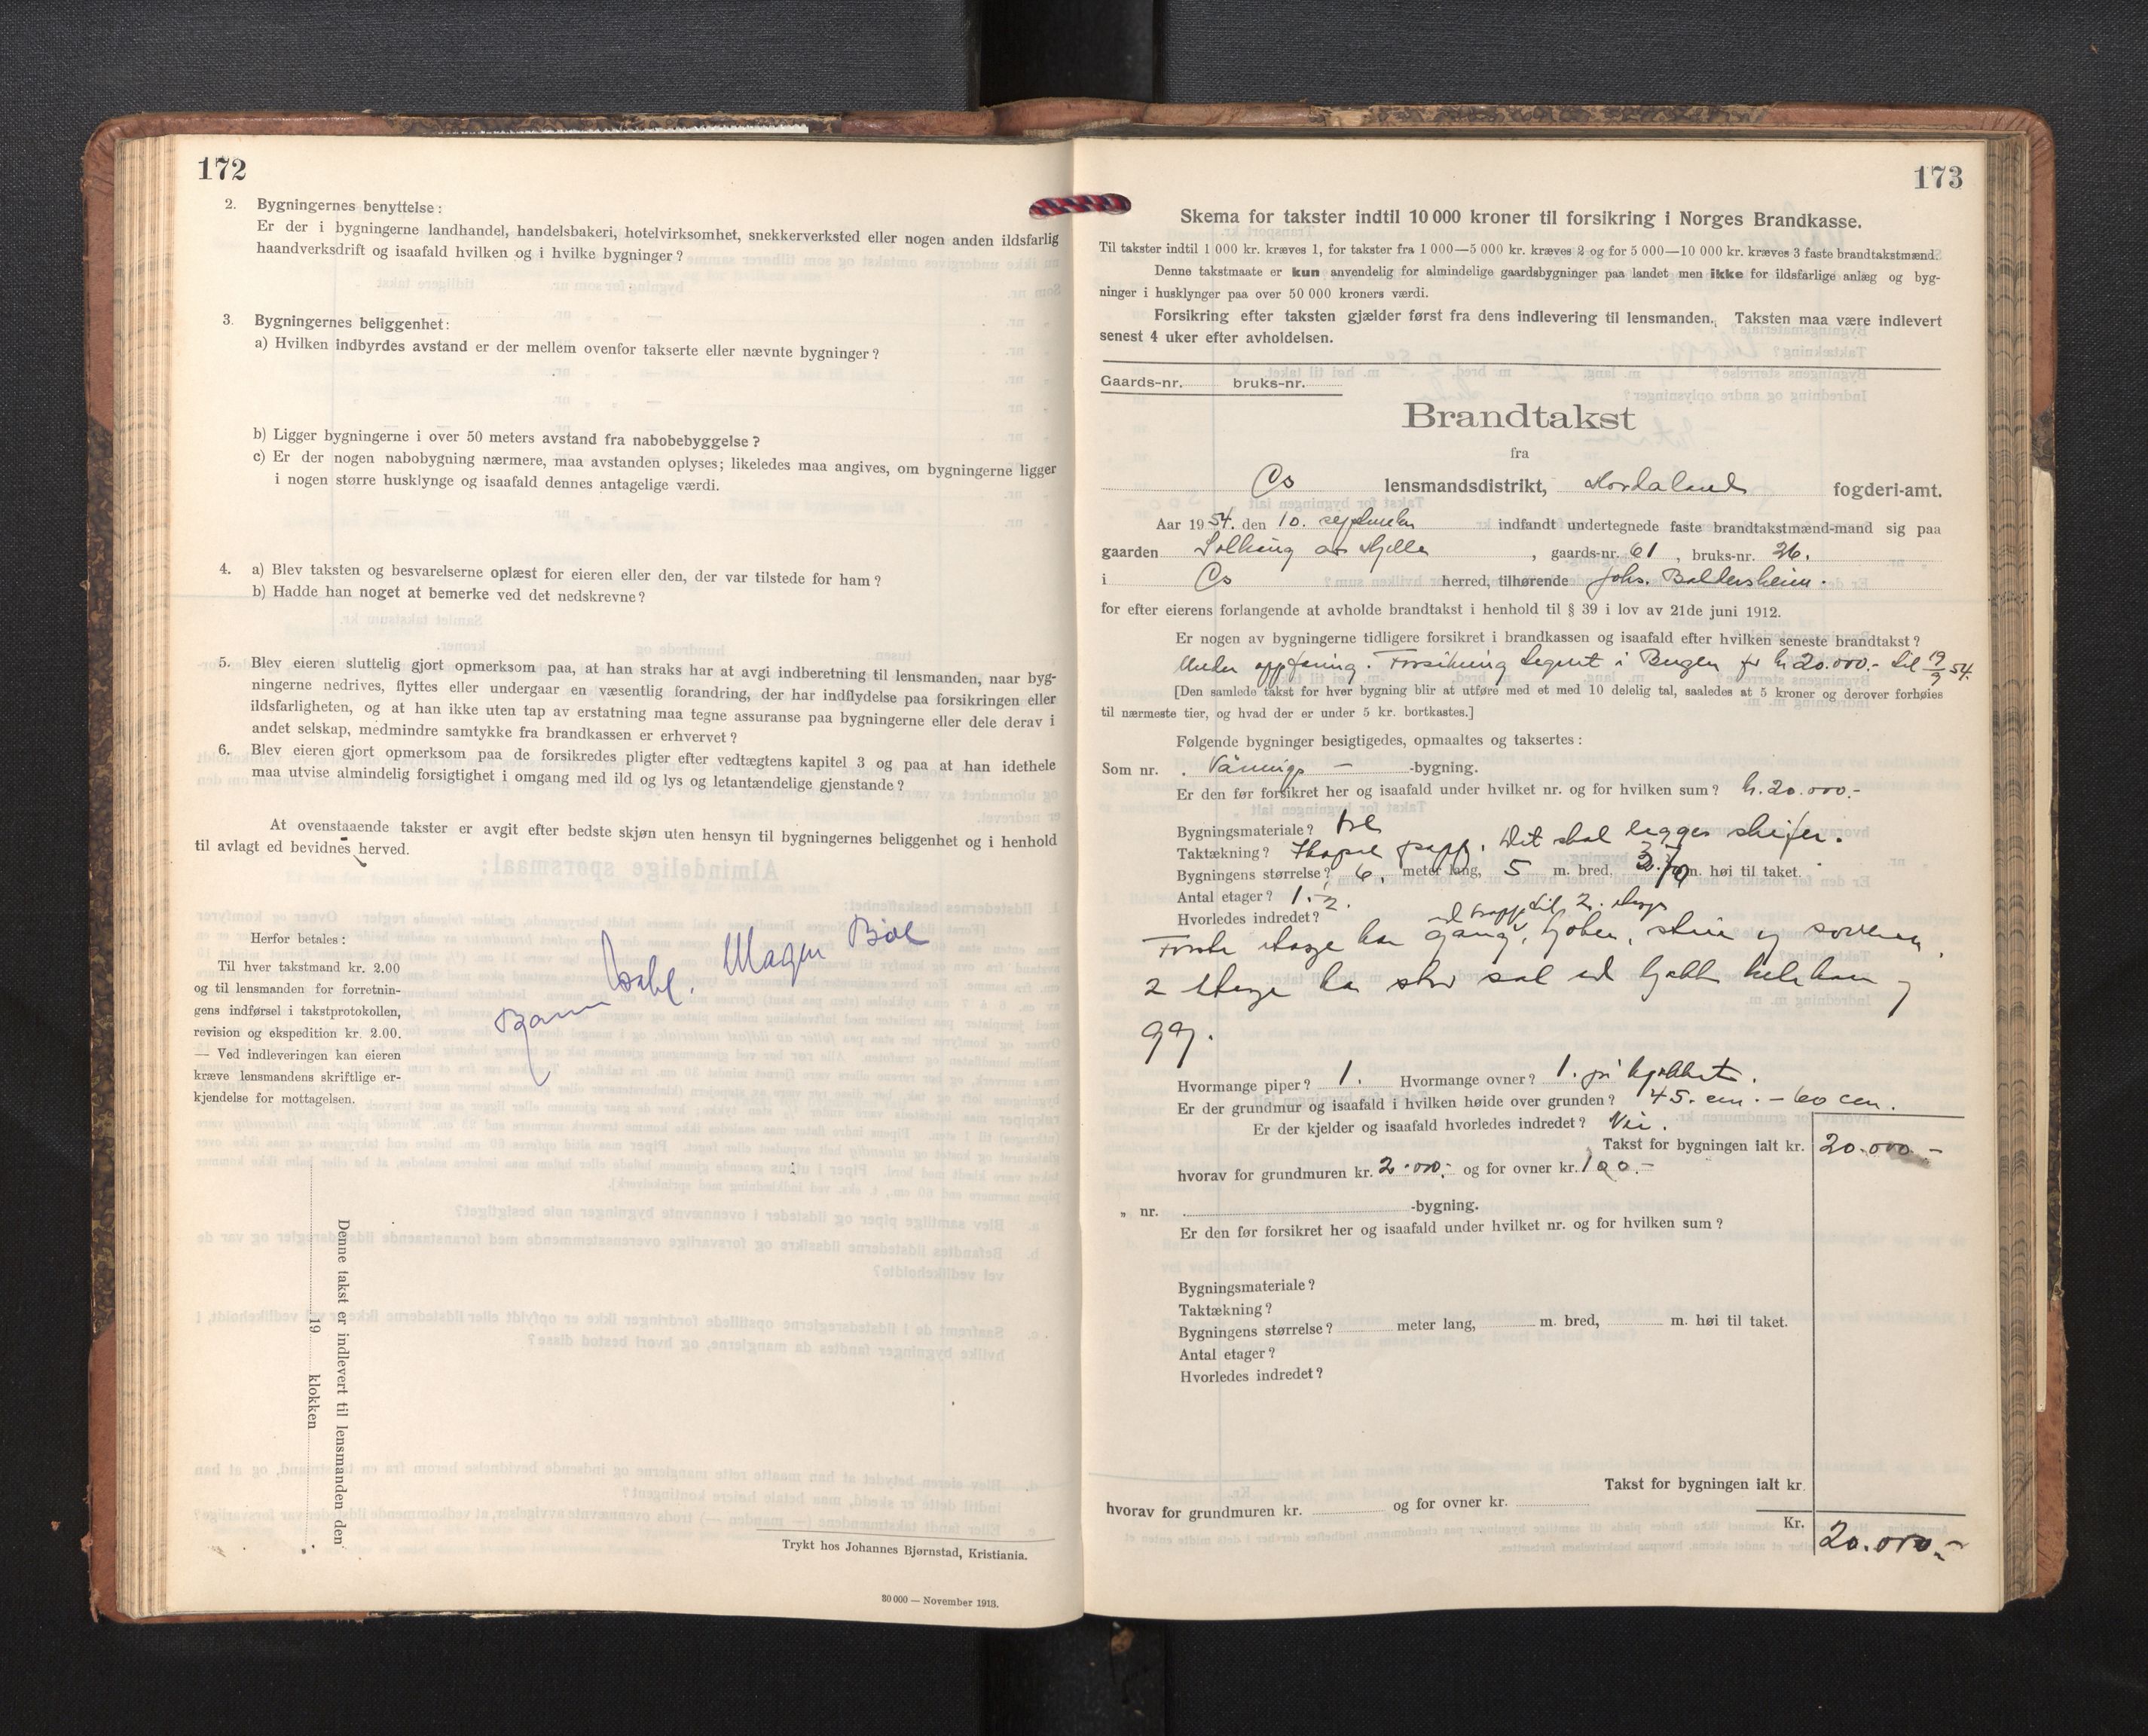 172
2. Bygningernes benyttelse:
Er der i bygningerne landhandel, handelsbakeri, hotelvirksomhet, snekkerverksted eller nogen anden ildsfarlig
haandverksdrift og isaafald hvilken og i hvilke bygninger?
3. Bygningernes beliggenhet:
a) Hvilken indbyrdes avstand er der mellem ovenfor takserte eller nævnte bygninger?
b) Ligger bygningerne i over 50 meters avstand fra nabobebyggelse?
c) Er der nogen nabobygning nærmere, maa avstanden oplyses; likeledes maa angives, om bygningerne ligger
i nogen større husklynge og isaafald dennes antagelige værdi.
4. a) Blev taksten og besvarelserne oplæst for eieren eller den, der var tilstede for ham?
b) Hadde han noget at bemerke ved det nedskrevne?
5. Blev eieren sluttelig gjort opmerksom paa, at han straks har at avgi indberetning til lensmanden, naar byg-
ningerne nedrives, flyttes eller undergaar en væsentlig forandring, der har indflydelse paa forsikringen eller
ildsfarligheten, og at han ikke uten tap av erstatning maa tegne assuranse paa bygningerne eller dele derav i
andet selskap, medmindre samtykke fra brandkassen er erhvervet?
6. Blev eieren gjort opmerksom paa de forsikredes pligter efter vedtægtens kapitel 3 og paa at han idethele
maa utvise almindelig forsigtighet i omgang med ild og lys og letantændelige gjenstande?
At ovenstaaende takster er avgit efter bedste skjøn uten hensyn til bygningernes beliggenhet og i henhold
til avlagt ed bevidnes herved.
Magn Bøe
Herfor betales:
Til hver takstmand kr. 2.00
og til lensmanden for forretnin-
gens indførsel i takstprotokollen,
revision og ekspedition kr. 2.00.
— Ved indleveringen kan eieren
kræve lensmandens skriftlige er-
kjendelse for mottagelsen.
Denne takst er indlevert til lensmanden den
19 klokken
Trykt hos Johannes Bjørnstad, Kristiania.
30 000 — November 1913.
173
Skema for takster indtil 10 000 kroner til forsikring i Norges Brandkasse.
Til takster indtil 1 000 kr. kræves 1, for takster fra 1 000—5 000 kr. kræves 2 og for 5 000—10 000 kr. kræves 3 faste brandtakstmænd.
Denne takstmaate er kun anvendelig for almindelige gaardsbygninger paa landet men ikke for ildsfarlige anlæg og byg-
ninger i husklynger paa over 50 000 kroners værdi.
Forsikring efter taksten gjælder først fra dens indlevering til lensmanden. Taksten maa være indlevert
senest 4 uker efter avholdelsen.
Gaards-nr. bruks-nr.
Brandtakst
fra
Os lensmandsdistrikt, Hordaland fogderi-amt.
Aar 1954. den 10. september indfandt undertegnede faste brandtakstmænd-mand sig paa
gaarden Solhaug av Hjelle, gaards-nr. 61, bruks-nr. 26.
i Os herred, tilhørende Johs. Baldersheim.
for efter eierens forlangende at avholde brandtakst i henhold til § 39 i lov av 21de juni 1912.
Er nogen av bygningerne tidligere forsikret i brandkassen og isaafald efter hvilken seneste brandtakst?
Under oppføring. Forsikring tegnet i Bergen for kr 20.000.- til 19/9 54.
[Den samlede takst for hver bygning blir at utføre med et med 10 delelig tal, saaledes at 5 kroner og derover forhøies
til nærmeste tier, og hvad der er under 5 kr. bortkastes.]
Følgende bygninger besigtigedes, opmaaltes og taksertes:
Som nr. Vånings — -bygning.
Er den før forsikret her og isaafald under hvilket nr. og for hvilken sum? kr. 20.000.-
Bygningsmateriale? tre
Taktækning? papp. Det skal legges skifer.
Bygningens størrelse? 6, meter lang, 5 m. bred, m. høi til taket.
Antal etager? 1. ½.
Hvorledes indredet? m/ trapp til 2. etage
Første etage har gang, kjøken, stue og soverom
2 etage har stor sal
Hvormange piper? 1. Hvormange ovner? 1. på kjøkket.
Er der grundmur og isaafald i hvilken høide over grunden? 45. cm. - 60 cm.
Er der kjelder og isaafald hvorledes indredet? Nei.
Takst for bygningen ialt kr. 20.000.-
hvorav for grundmuren kr. 2.000.- og for ovner kr. 100.-
„ nr. -bygning.
Er den før forsikret her og isaafald under hvilket nr. og for hvilken sum?
Bygningsmateriale?
Taktækning?
Bygningens størrelse? meter lang, m. bred, m. høi til taket.
Antal etager?
Hvorledes indredet?
Takst for bygningen ialt kr.
hvorav for grundmuren kr. og for ovner kr.
Kr. 20.000.-